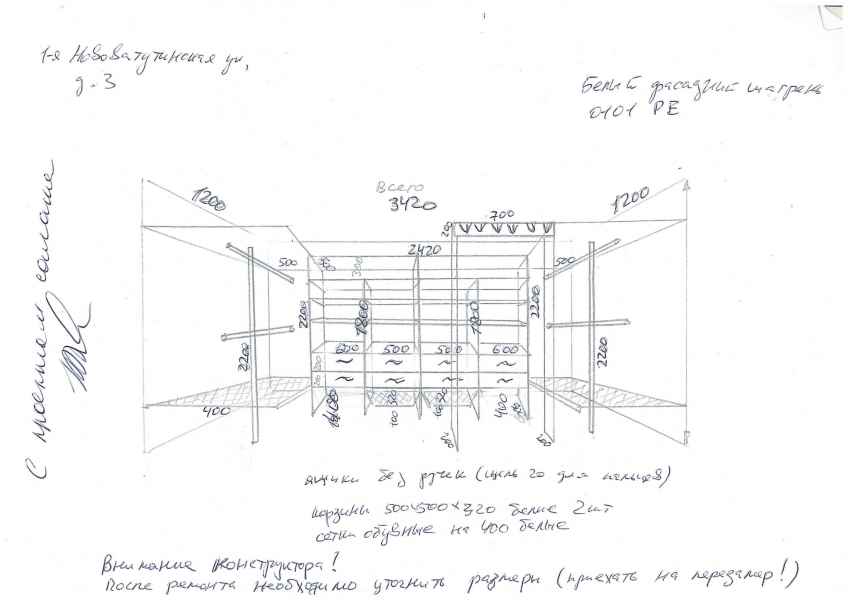 1-я Нововатутинская ул,
д. 3
Белый фасадный шагрень
0101 PE
С проектом согласна
Всего
3420
1200
1200
700
200
2420
500
300
500
2200
1800
1800
2200
2200
2200
600 500 500 600
400
400
400
ящики без ручек (щель 20 для пальцев)
корзины 500х500х320 белые 2шт
сетки обувные на 400 белые
Внимание конструктора!
После ремонта необходимо уточнить размеры (приехать на перезамер!)